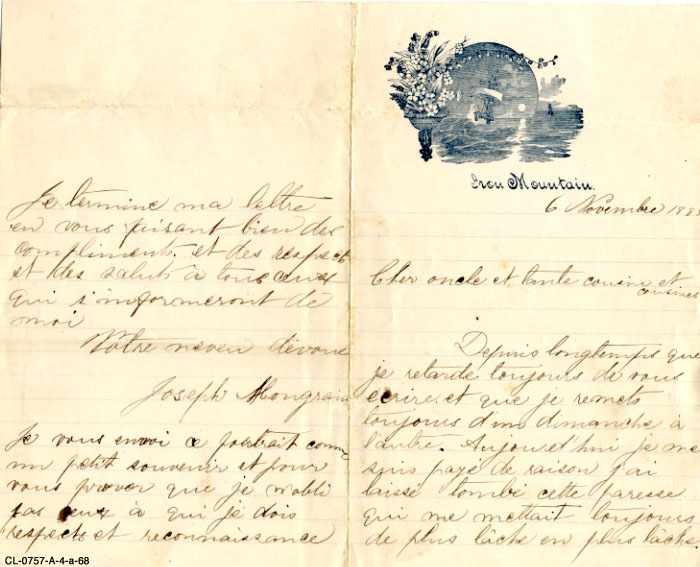 Iron Mountain.
6 Novembre 188
Cher oncle et tante cousin et
cousines
Depuis longtemps que
je retarde toujours de vous
ecrire et que je remets
toujours d'un dimanche à
l'autre. Aujourd'hui je me
suis payé de raison j'ai
laissé tombé cette paresse
qui me mettait toujours
de plus lâche en plus lâche.
Je termine ma lettre
en vous faisant bien des
compliments et des respects
et des saluts à tous ceux
qui s'informeront de
moi
Votre neveu dévoué
Joseph Mongrain
Je vous envoi ce portrait comme
un petit souvenir et pour
vous prouver que je n'obli
pas ceux à qui je dois
respects et reconnaissance
CL-0757-A-4-a-68